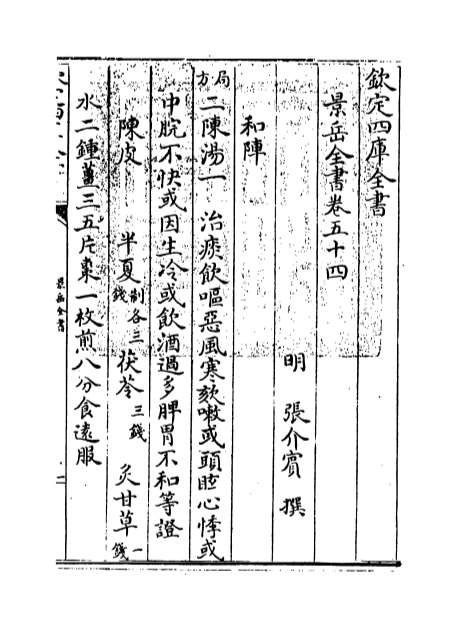 欽定四庫全書
景岳全書卷五十四
明 張介賓 撰
和陣
局方二陳湯一 治痰飲嘔惡風寒欬嗽或頭眩心悸或
中脘不快或因生冷或飲酒過多脾胃不和等證
陳皮 半夏製各三錢 茯苓三錢 炙甘草一錢
水二鍾薑三五片棗一枚煎八分食遠服
景岳全書